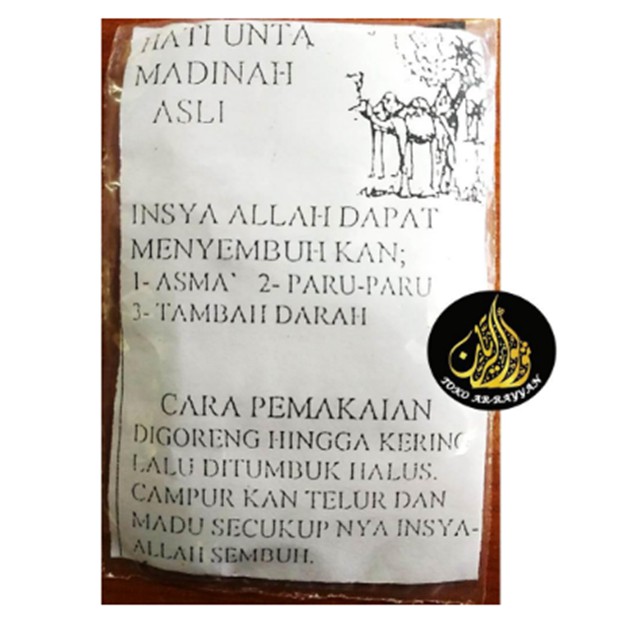 HATI UNTA
MADINAH
ASLI
INSYA ALLAH DAPAT
MENYEMBUH KAN;
1- ASMA` 2- PARU-PARU
3- TAMBAH DARAH
CARA PEMAKAIAN
DIGORENG HINGGA KERING
LALU DITUMBUK HALUS.
CAMPUR KAN TELUR DAN
MADU SECUKUP NYA INSYA-
ALLAH SEMBUH.
TOKO AR-RAYYAN